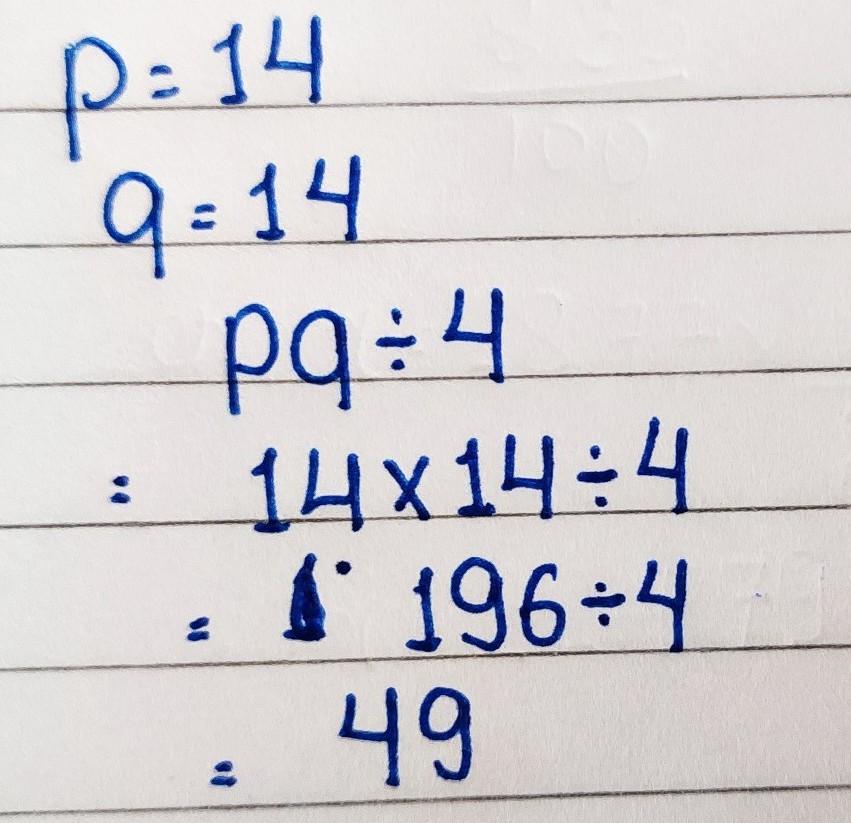 p = 14
q = 14
pq ÷ 4
= 14 × 14 ÷ 4
= 196 ÷ 4
= 49